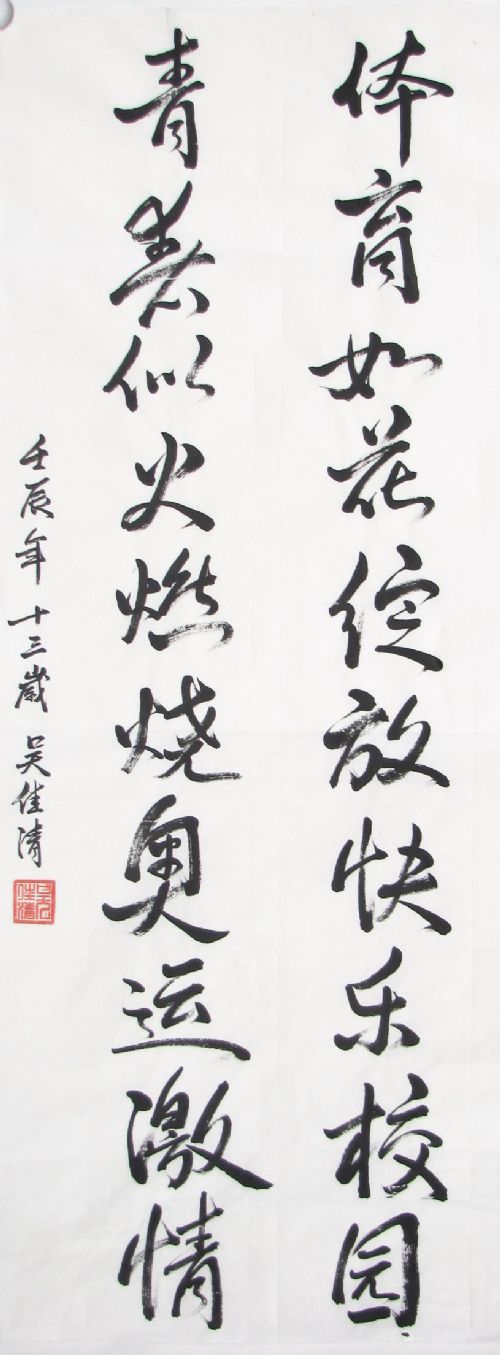 体育如花绽放快乐校园
青春似火燃烧奥运激情
壬辰年 十三歲 吴佳清
吴佳清